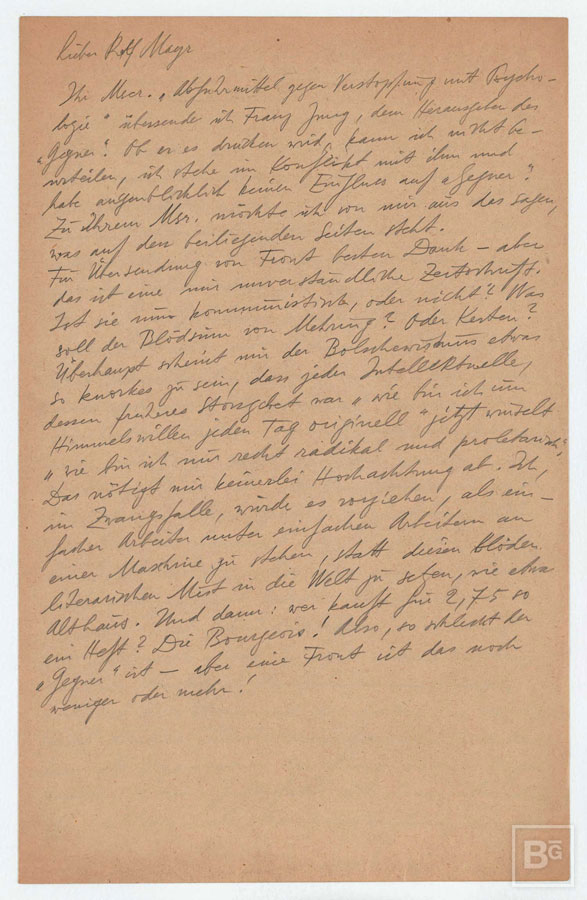 Lieber Rolf Mayr
Ihr Mscr. „Abführmittel gegen Verstopfung mit Psycho-
logie" übersende ich Franz Jung, dem Herausgeber des
„Gegner". Ob er es drucken wird, kann ich nicht be-
urteilen, ich stehe im Konflikt mit ihm und
habe augenblicklich keinen Einfluss auf „Gegner".
Zu Ihrem Mscr. möchte ich von mir aus das sagen,
was auf den beiliegenden Seiten steht.
Für Übersendung von Front besten Dank – aber
das ist eine mir unverständliche Zeitschrift.
Ist sie nun kommunistisch, oder nicht? Was
soll der Blödsinn von Mehring? Oder Kersten?
Überhaupt scheint mir der Bolschewismus etwas
so knorkes zu sein, dass jeder Intellektuelle,
dessen früheres Stossgebet war „wie bin ich um
Himmelswillen jeden Tag originell" jetzt winselt
„wie bin ich nur recht radikal und proletarisch".
Das nötigt mir keinerlei Hochachtung ab. Ich,
im Zwangsfalle, würde es vorziehen, als ein-
facher Arbeiter unter einfachen Arbeitern an
einer Maschine zu stehen, statt diesen blöden
literarischen Mist in die Welt zu setzen, wie etwa
Althaus. Und dann: wer kauft für 2,75 so
ein Heft? Die Bourgeois! Also, so schlecht der
„Gegner" ist – aber eine Front ist das noch
weniger oder mehr!
BG